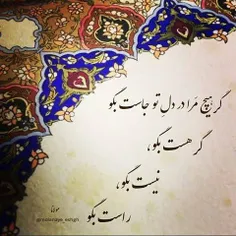 گر هیچ مرا در دلِ تو جاست بگو
گر هست بگو،
نیست بگو،
راست بگو
مولانا